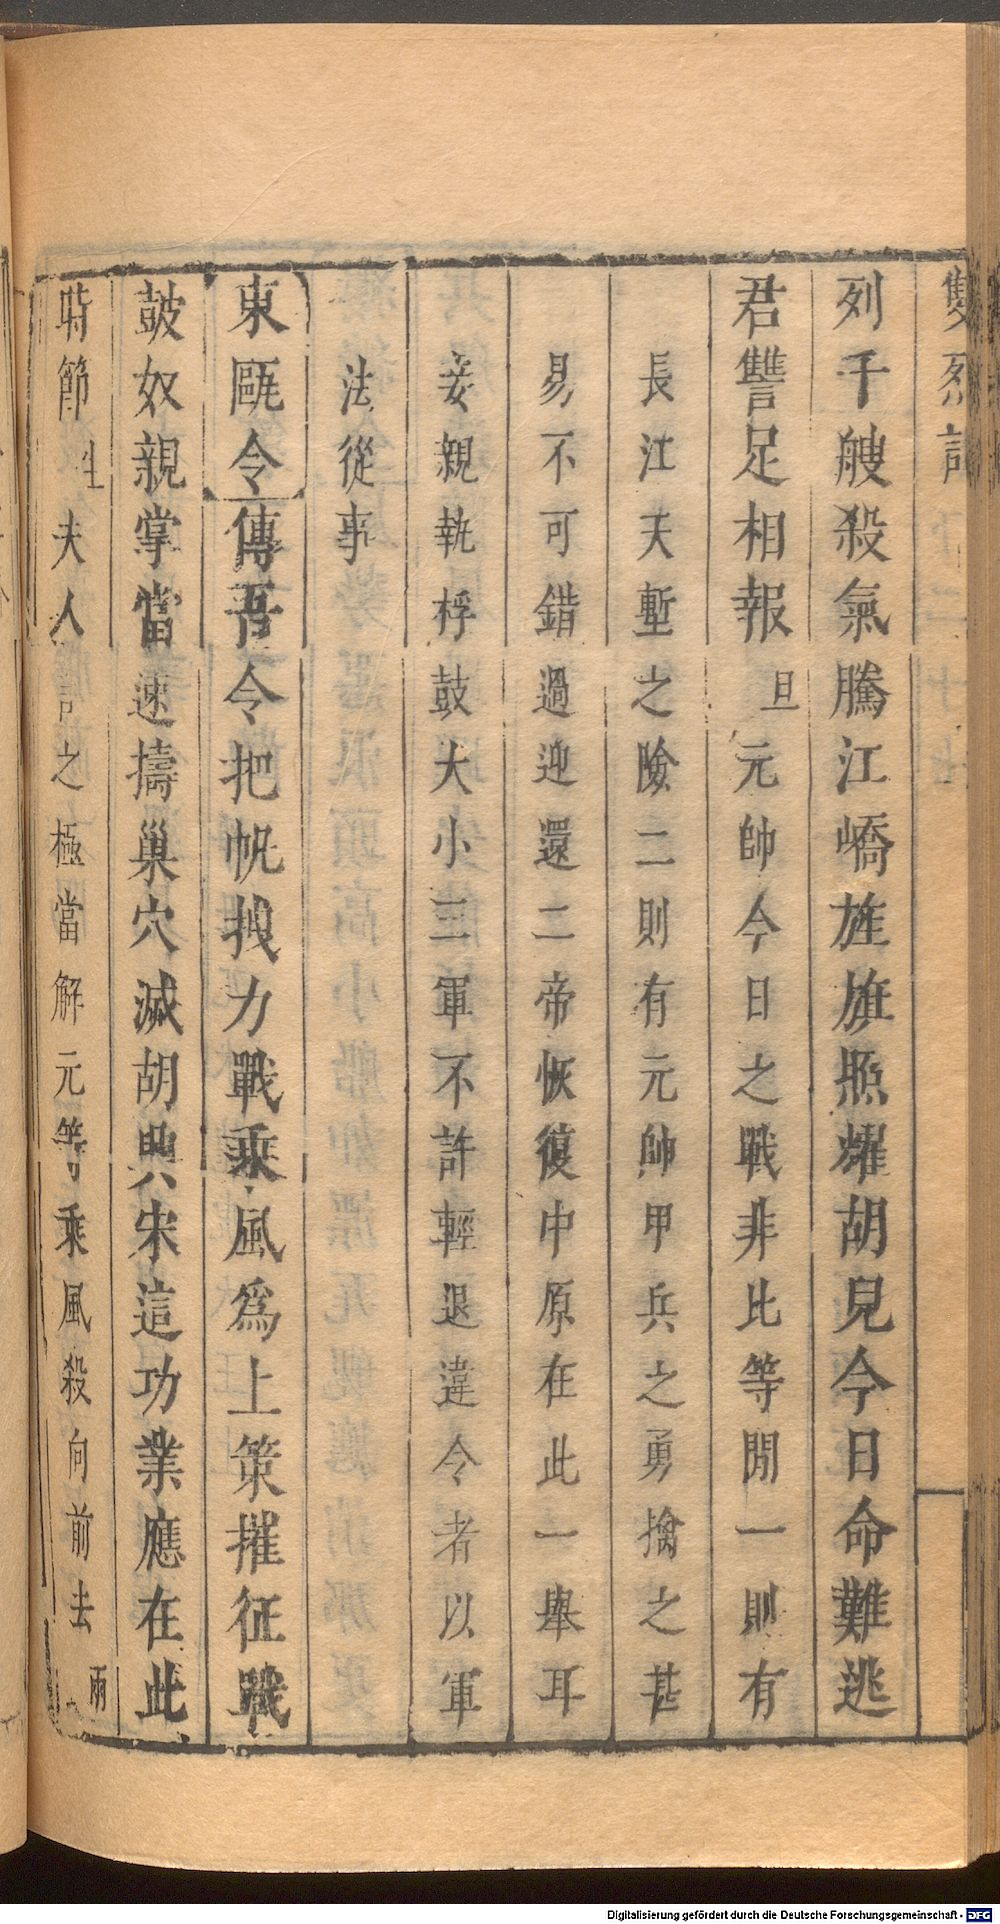 雙烈記
列千艘殺氣騰江嶠旌旗照耀胡兒今日命難逃
君讐足相報旦元帥今日之戰非比等閒一則有
長江天塹之險二則有元帥甲兵之勇擒之甚
易不可錯過迎還二帝恢復中原在此一舉耳
妾親執桴鼓大小三軍不許輕退違令者以軍
法從事
東甌令傳吾令把帆拽力戰乘風爲上策摧征戰
皷奴親掌當速擣巢穴滅胡興宋這功業應在此
時節生夫人言之極當解元等乘風殺向前去
Digitalisierung gefördert durch die Deutsche Forschungsgemeinschaft - DFG